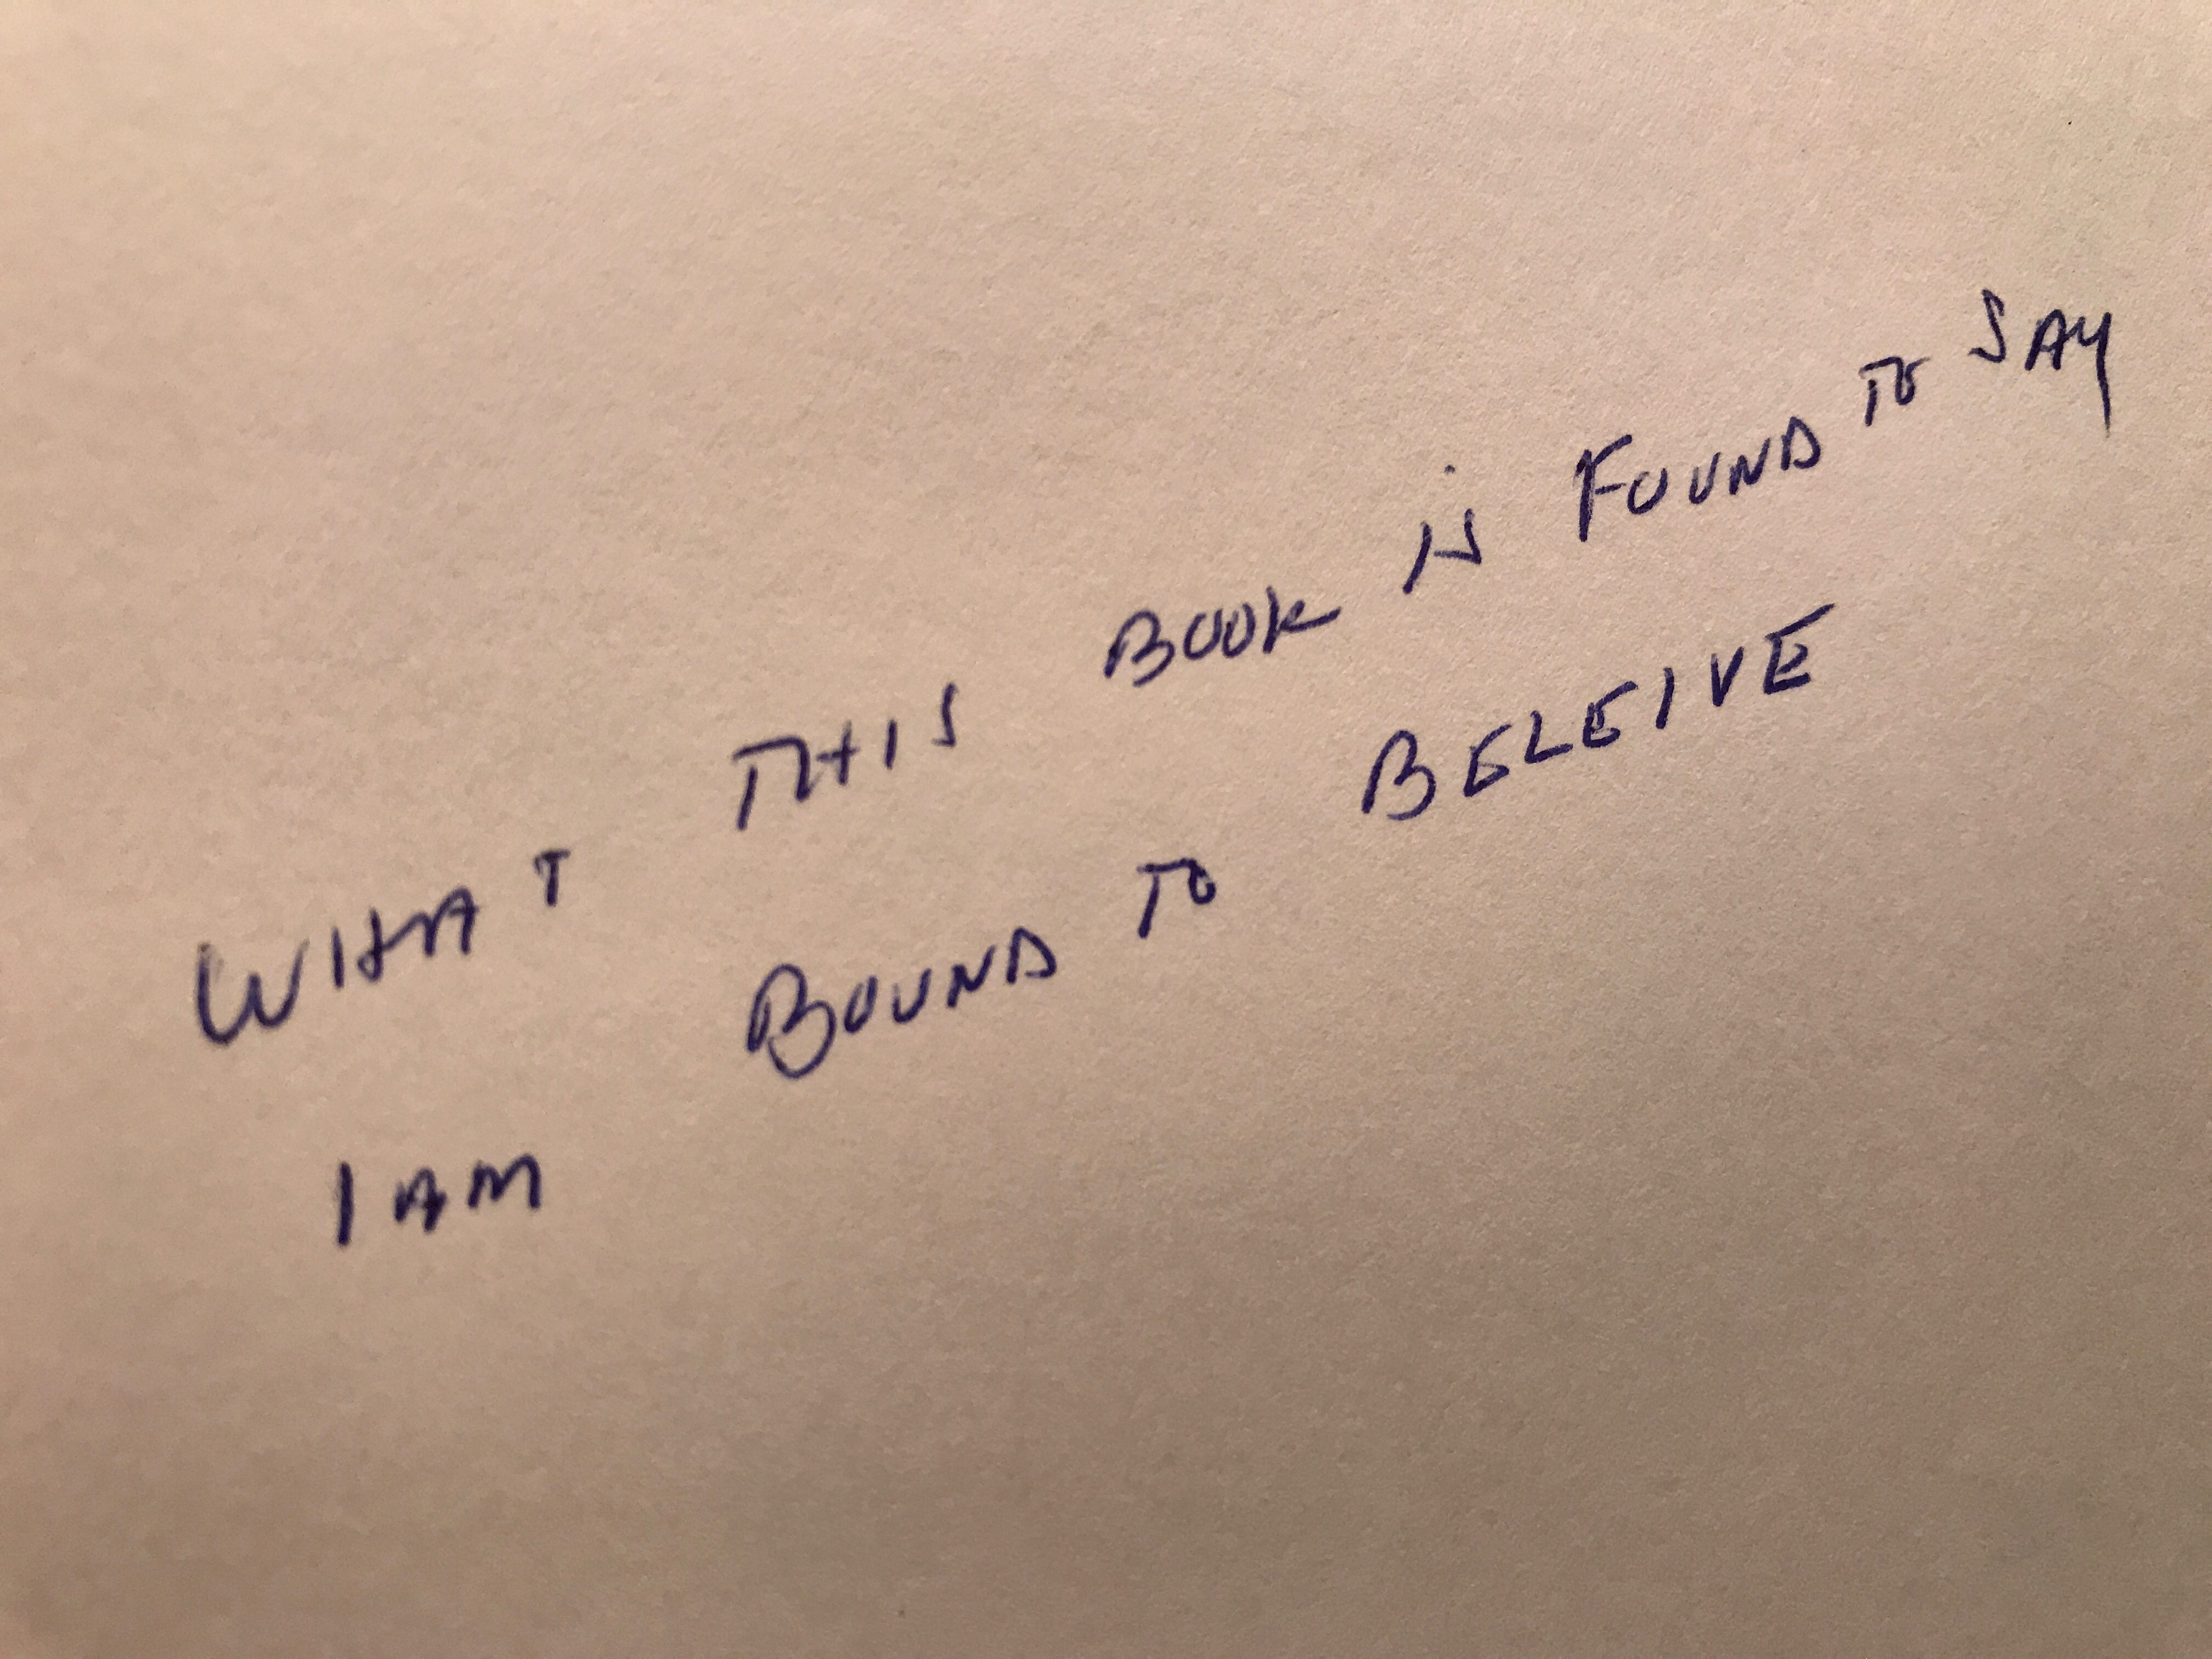 WHAT THIS BOOK iS FOUND TO SAY
I AM BOUND TO BELEIVE